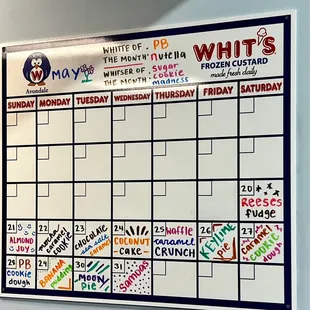 W
Avondale
May
WHITTE OF
THE MONTH:
PB
nutella
WHITSER OF
THE MONTH:
Sugar
cookie
madness
WHIT'S
FROZEN CUSTARD
made fresh daily
SUNDAY MONDAY TUESDAY WEDNESDAY THURSDAY FRIDAY SATURDAY
20
Reeses
fudge
21
ALMOND
JOY
22
caramel
COOKIE
23
CHOCOLATE
sea salt
caramel
24
COCONUT
CAKE
25 Waffle
caramel
CRUNCH
26
KEYLIME
PIE
27
Caramel
COOKIE
dough
28 PB
cookie
DOUGH
29
BANANA
PUDDING
30
MOON
PIE
31
Samoas